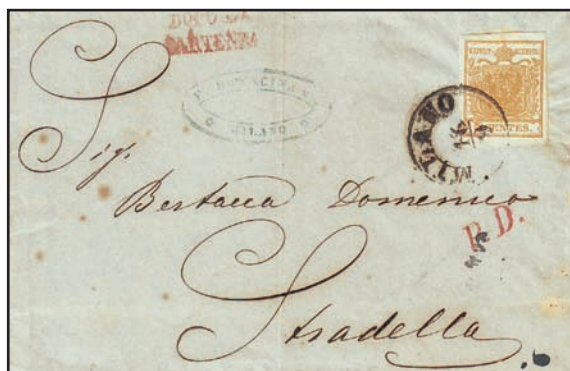 DOPO LA
PARTENZA
MILANO
MILANO
CENTES.
Sig.
Bertacca Domenico
P.D.
Stradella